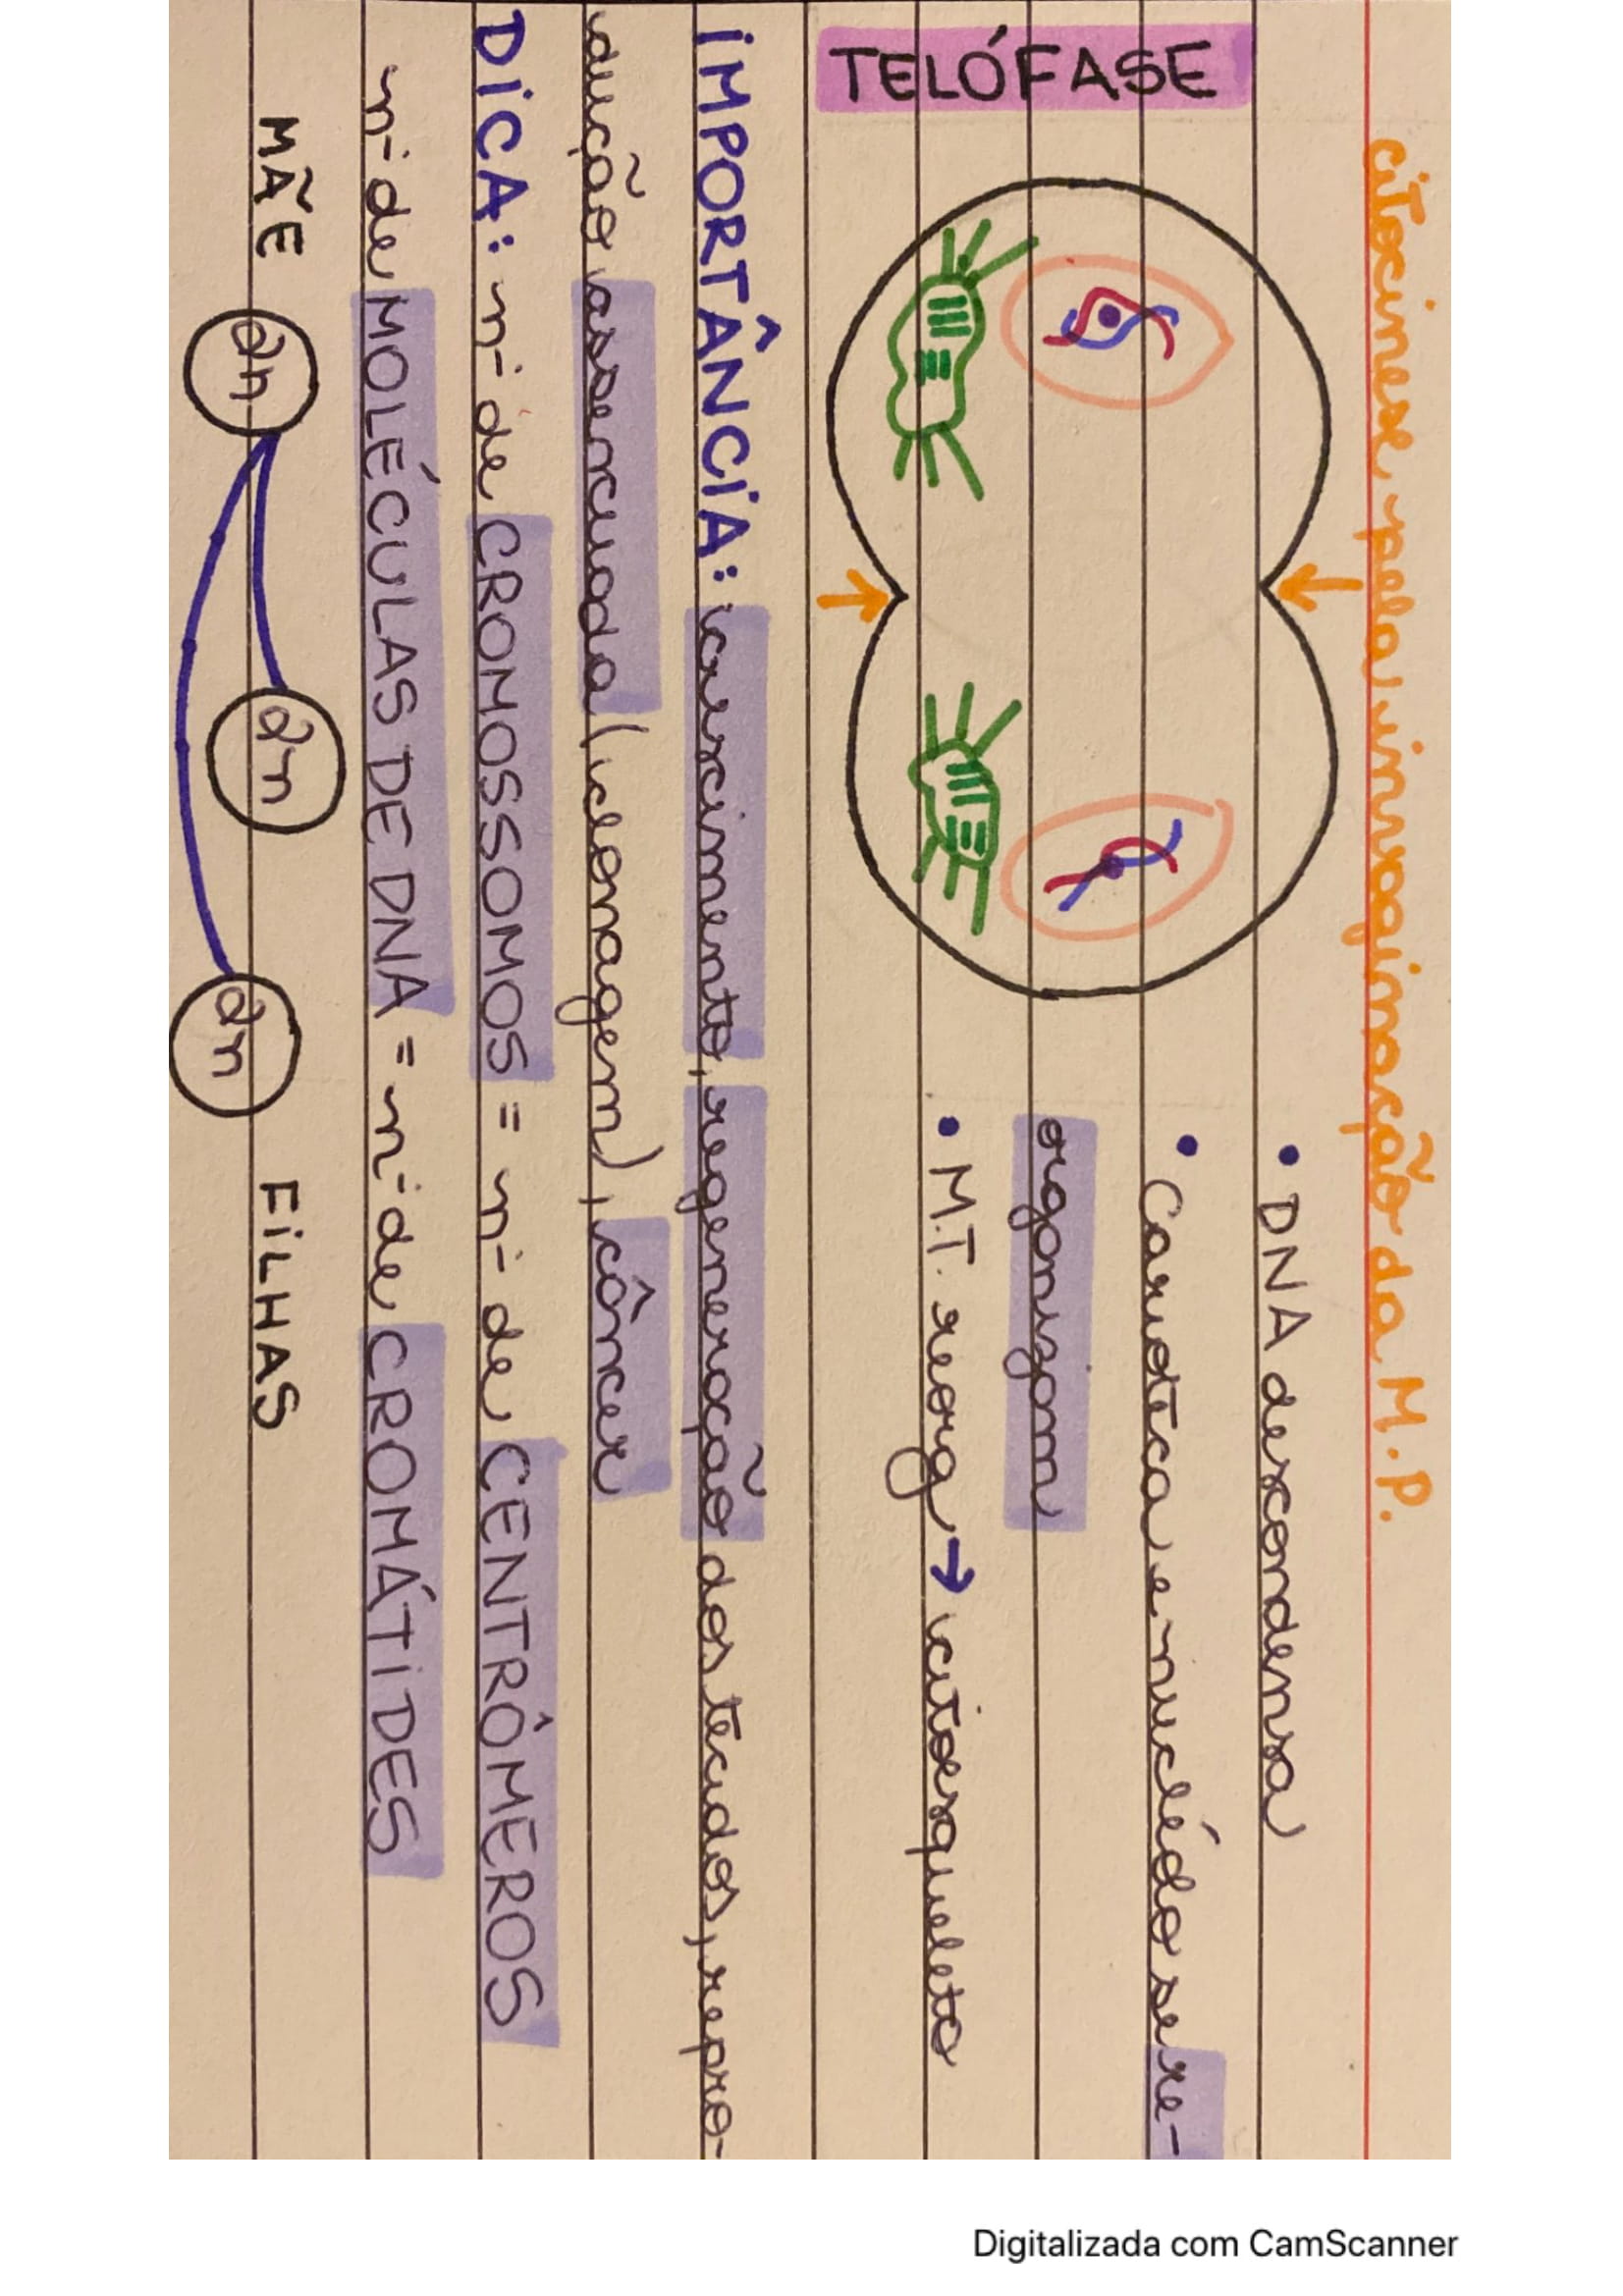 citocinese pela invaginação da M.P.
TELÓFASE
• DNA descondensa
• Carioteca e nucléolo se re-
organizam
• M.T. reorg → citoesqueleto
IMPORTÂNCIA: crescimento, regeneração dos tecidos, repro-
dução assexuada (clonagem), câncer
DICA: nº de CROMOSSOMOS = nº de CENTRÔMEROS
nº de MOLÉCULAS DE DNA = nº de CROMÁTIDES
MÃE 2n 2n 2n FILHAS
Digitalizada com CamScanner